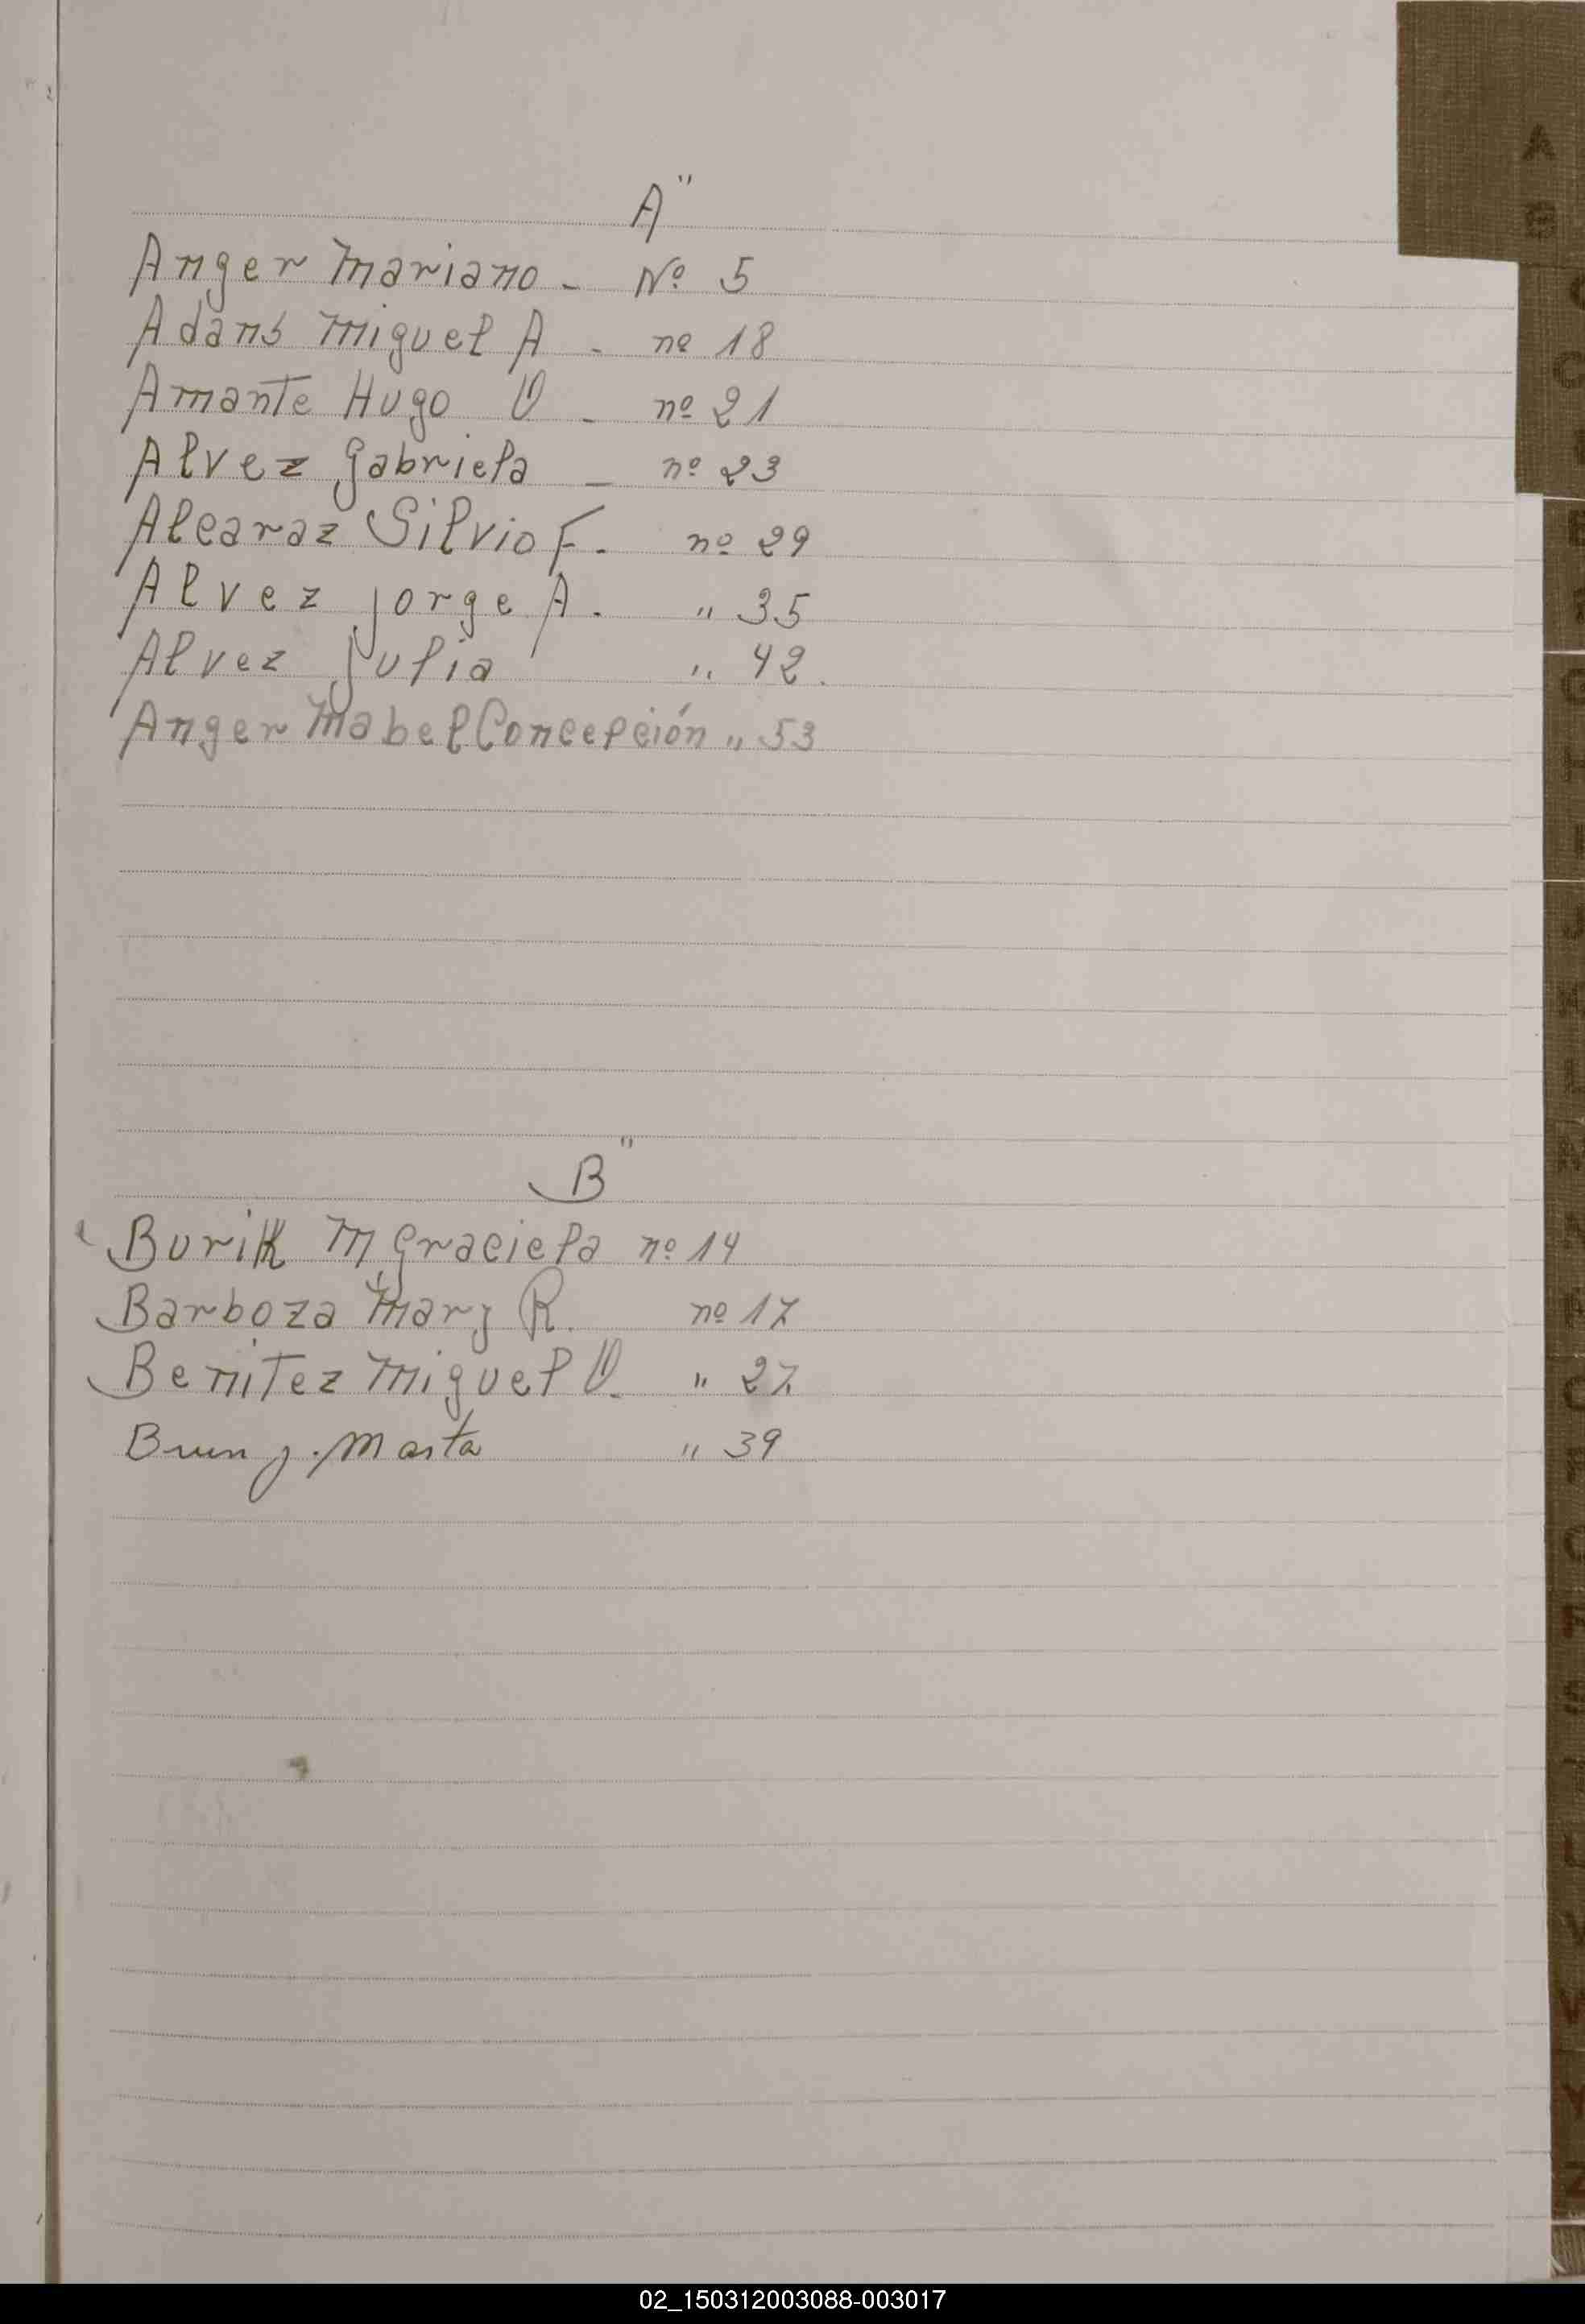 A"
Anger Mariano - Nº 5
Adans Miguel A - nº 18
Amante Hugo O - nº 21
Alvez Gabriela - nº 23
Alcaraz Silvio F. nº 29
Alvez Jorge A. " 35
Alvez Julia " 42.
Anger Mabel Concepción " 53
B"
Burik M Graciela nº 14
Barboza Mary R. nº 17
Benitez Miguel O. " 27
Brun J. Marta " 39
A
B
C
02_150312003088-003017